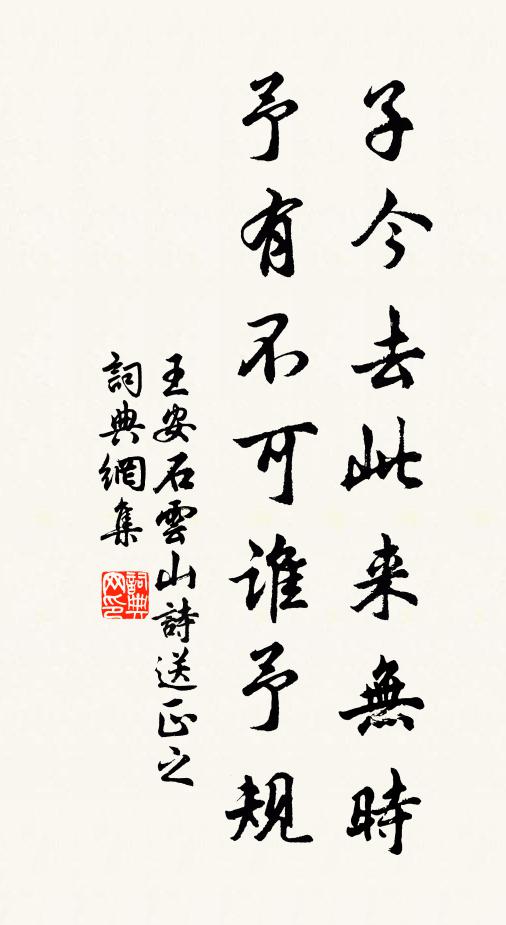 子今去此来無時
予有不可誰予規
王安石雲山詩送正之
詞典網集
詞典网印